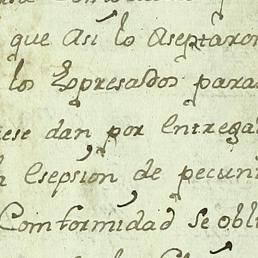 que Así lo Aseptaron
los Expresados para
ese dan por Entrega
Esepsion de pecuni
Comformidad se obli